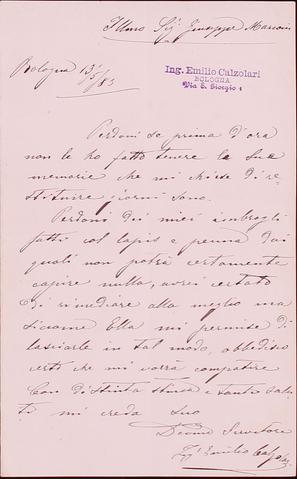 Illmo Sig. Giuseppe
Bologna 13/5/83
Ing. Emilio Calzolari
BOLOGNA
Via S. Giorgio 1
Perdoni se prima d'ora
non le ho fatto tenere le Sue
memorie che mi chiese di re-
stituire giorni sono.
Perdoni dei miei imbrogli
fatti col lapis e penna dai
quali non potrà certamente
capire nulla, avrei
di rimediare alla meglio ma
siccome Ella mi permise di
lasciarle in tal modo, obbedisco
certo che mi vorrà compatire
Con distinta stima e tanti salu-
ti mi creda suo
Devmo Servitore
Emilio Calzolari